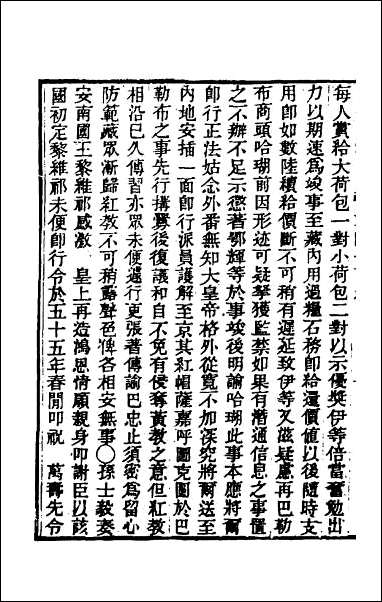 每人賞給大荷包一對小荷包二對以示優獎伊等倍當奮勉出
力以期速爲竣事至藏內用過糧石務卽給還價值以後隨時支
用卽如數陸續給價斷不可稍有遲延致伊等又滋疑慮再巴勒
布商頭哈瑚前因形迹可疑拏獲監禁如果有潛通信息之事置
之不辦不足示懲著鄂輝等於事竣後明諭哈瑚此事本應將爾
卽行正法姑念外番無知大皇帝格外從寬不加深究將爾送至
內地安插一面卽行派員護解至京其紅帽薩嘉呼圖克圖於巴
勒布之事先行搆釁後復議和自不免有侵奪黃教之意但紅教
相沿已久傳習亦眾未便遽行更張著傳諭巴忠止須密爲留心
防範藏眾漸歸紅教不可稍露聲色俾各相安無事〇孫士毅奏
安南國王黎維祁感激　皇上再造鴻恩情願親身叩謝臣以該
國初定黎維祁未便卽行令於五十五年春閒叩祝　萬壽先令